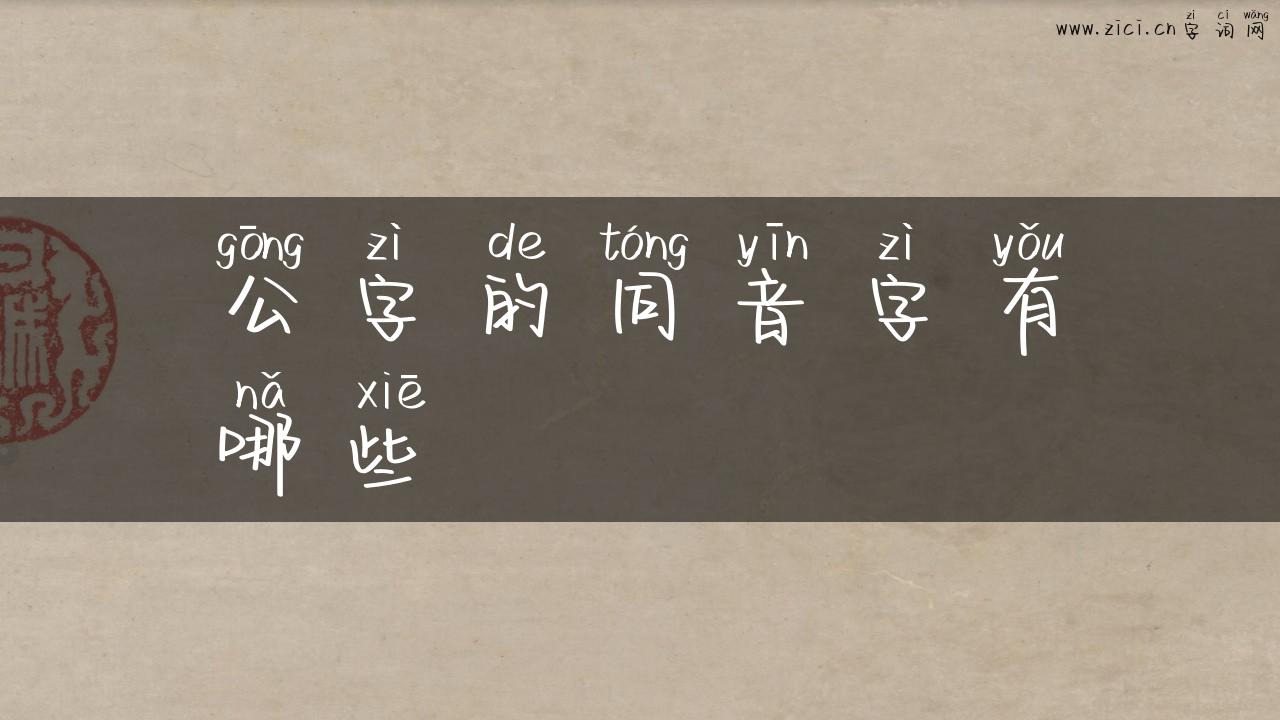 zì cí wǎng
www.zici.cn 字词网
gōng zì de tóng yīn zì yǒu
公字的同音字有
nǎ xiē
哪些